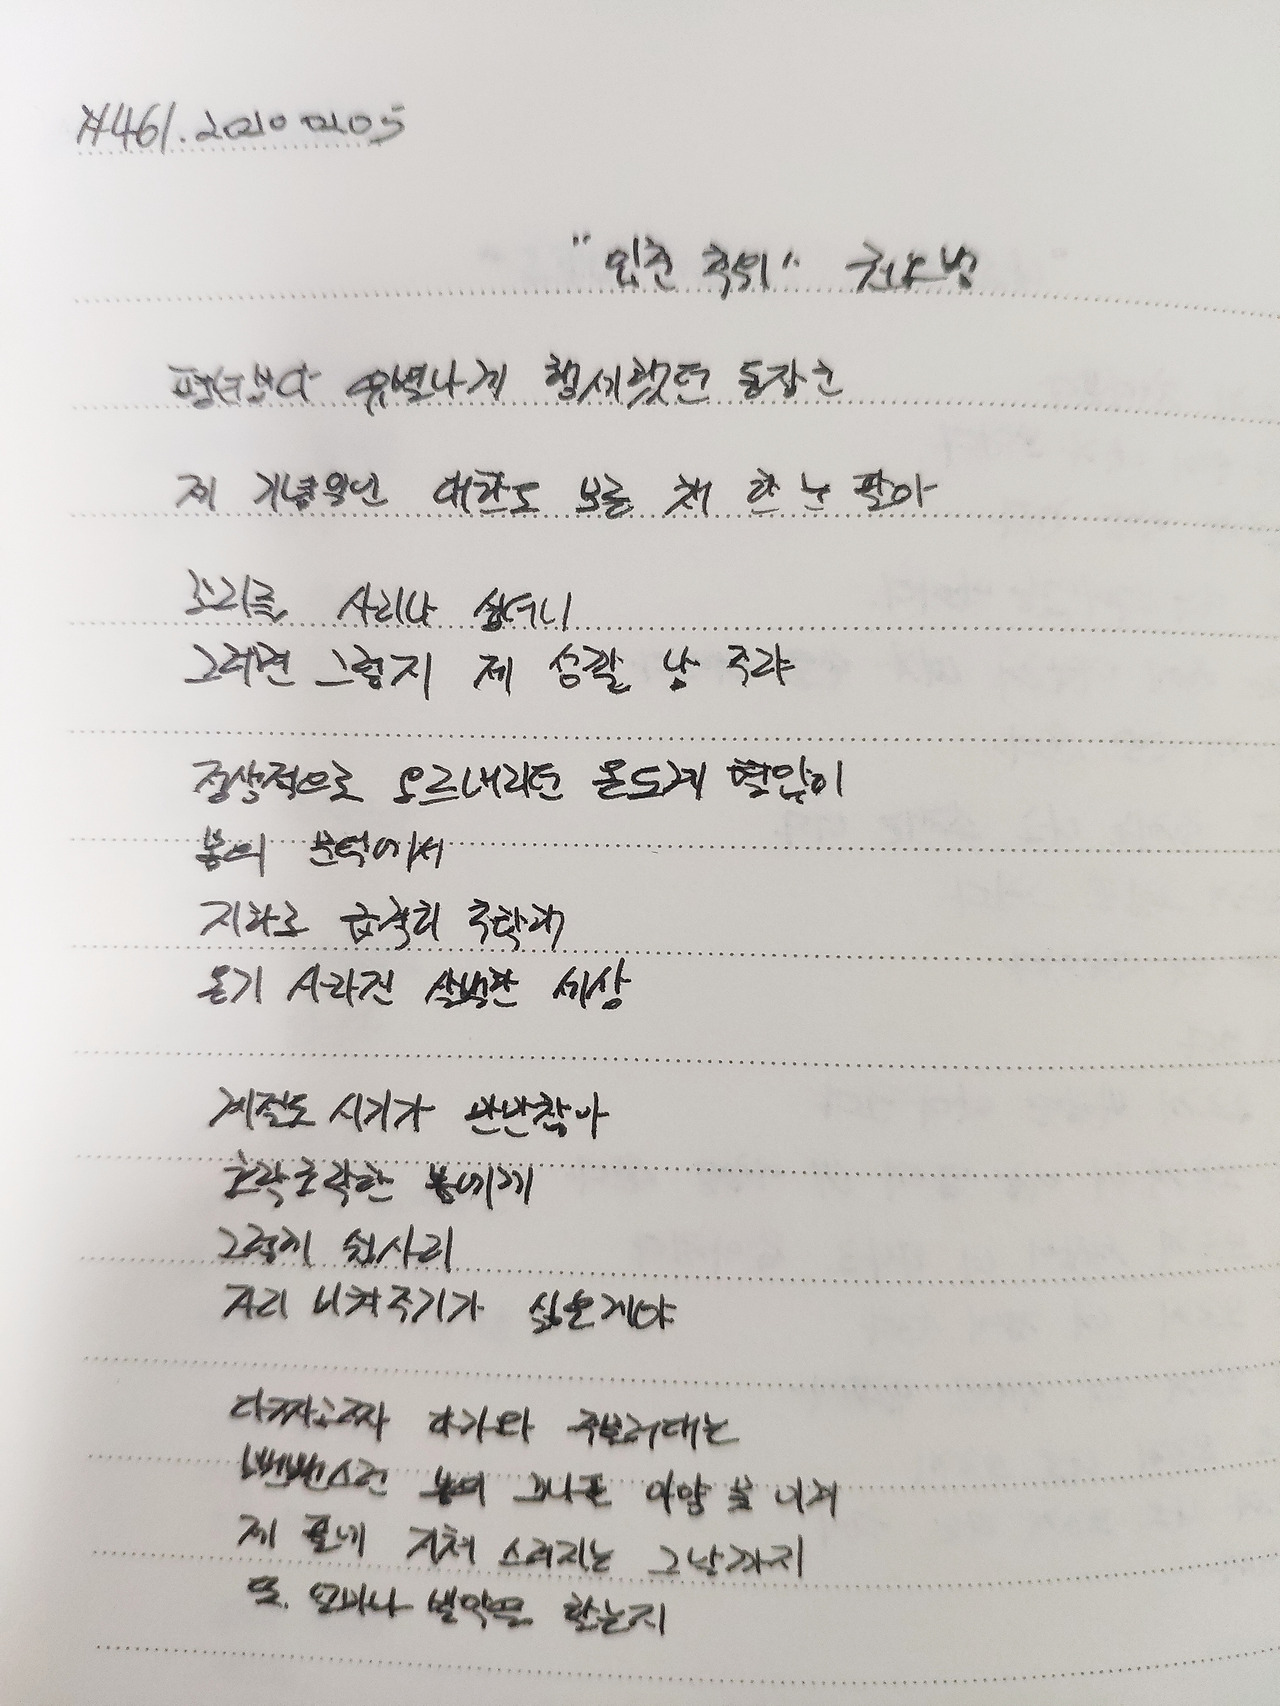 #461. 20200205
"입춘 추위" 천소념
평년보다 유별나게 행세했던 동장군
제 기념일난 대한도 모를 채 한 눈 팔아
꼬리를 사리나 싶더니
그러면 그렇지 제 성깔 남 주랴
정상적으로 오르내리던 온도계 혈압이
봄의 문턱에서
지하로 급격히 추락해
온기 사라진 살벌한 세상
계절도 시기가 만만찮아
호락호락한 봄에게
그렇게 쉽사리
자리 비켜주기가 싫은게야
다짜고짜 다가와 주물러대는
뻔뻔스런 봄의 고나픈 아양 못 이겨
제 풀에 지쳐 스러지는 그날까지
또, 얼마나 발악을 할는지